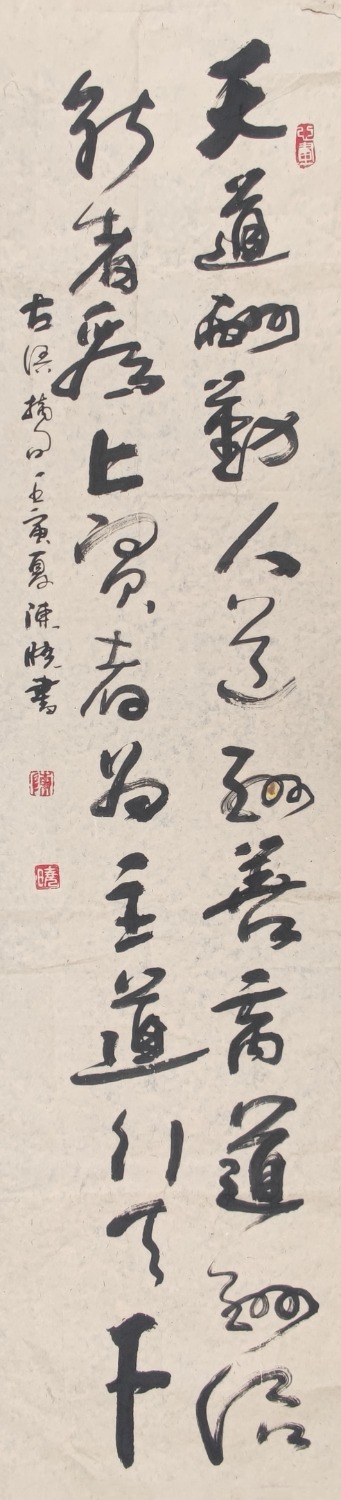 天道酬勤人道酬善商道酬信
能者為上賢者为主道行天下
古语摘句壬寅夏陳曉書
陳
曉